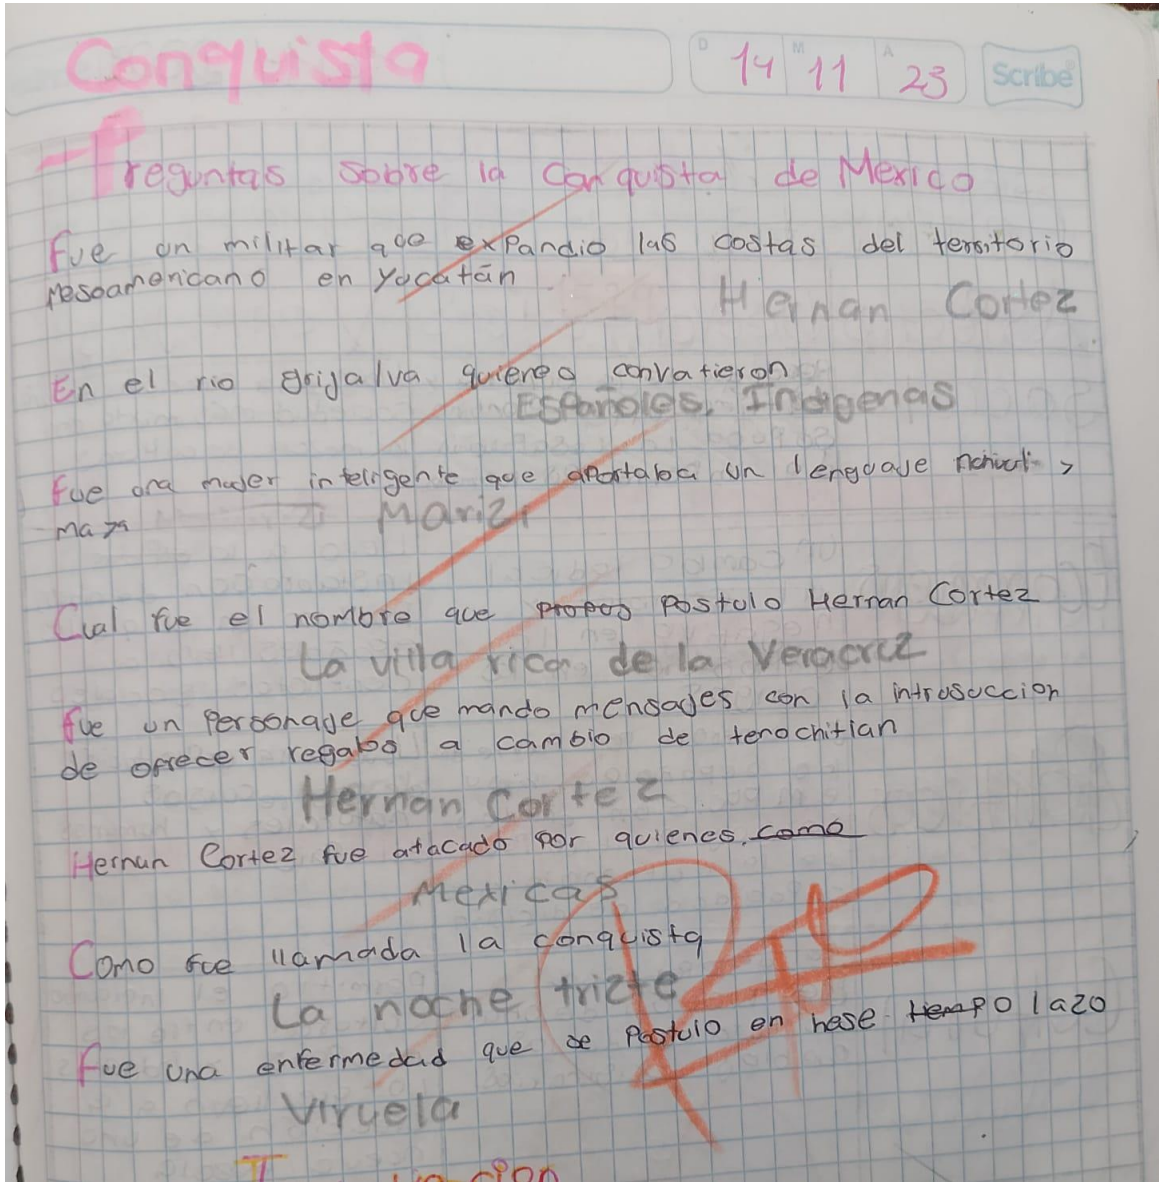 Conquista
D 14 M 11 A 23 Scribe
Preguntas sobre la Conquista de Mexico
Fue un militar que expandio las costas del territorio
mesoamericano en Yucatán
Hernan Cortez
En el rio grijalva quienes convatieron
Españoles, Indigenas
Fue una mujer inteligente que aportaba un lenguaje
maya
Cual fue el nombre que propos postulo Hernan Cortez
La villa rica de la Veracruz
Fue un personage que mando mensajes con la introsuccion
de ofrecer regalos a cambio de tenochitlan
Hernan Cortez
Hernan Cortez fue atacado por quienes. como
Mexicas
Como fue llamada la conquista
La noche trizte
Fue una enfermedad que se postulo en hese tiempo lazo
Viruela